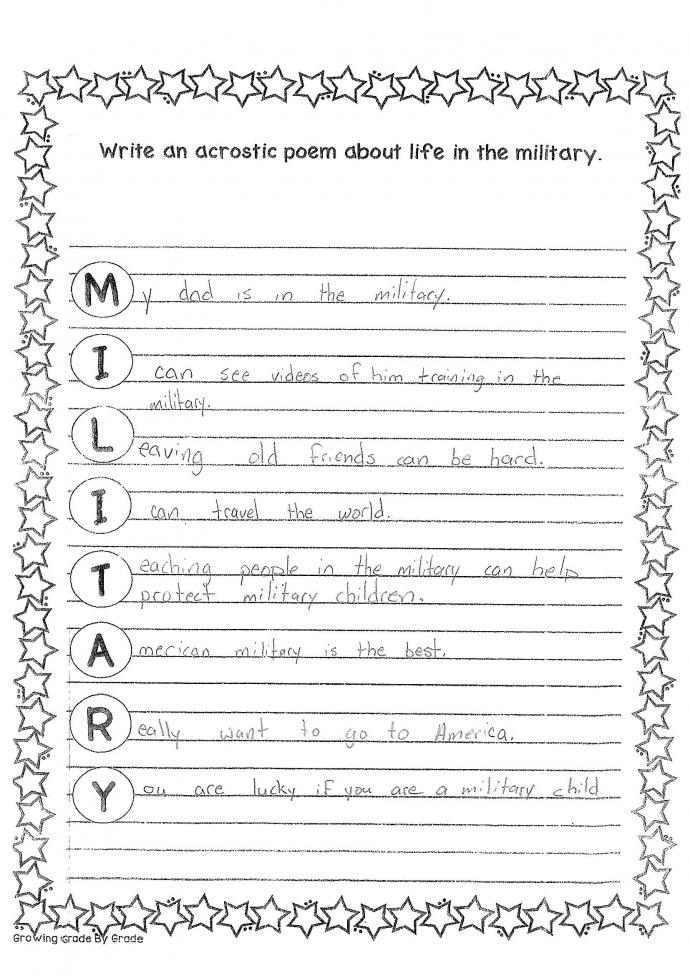 Write an acrostic poem about life in the military.
My dad is in the military.
I can see videos of him training in the
military.
Leaving old friends can be hard.
I can travel the world.
Teaching people in the military can help
protect military children.
American military is the best.
Really want to go to America.
You are lucky if you are a military child
Growing Grade By Grade